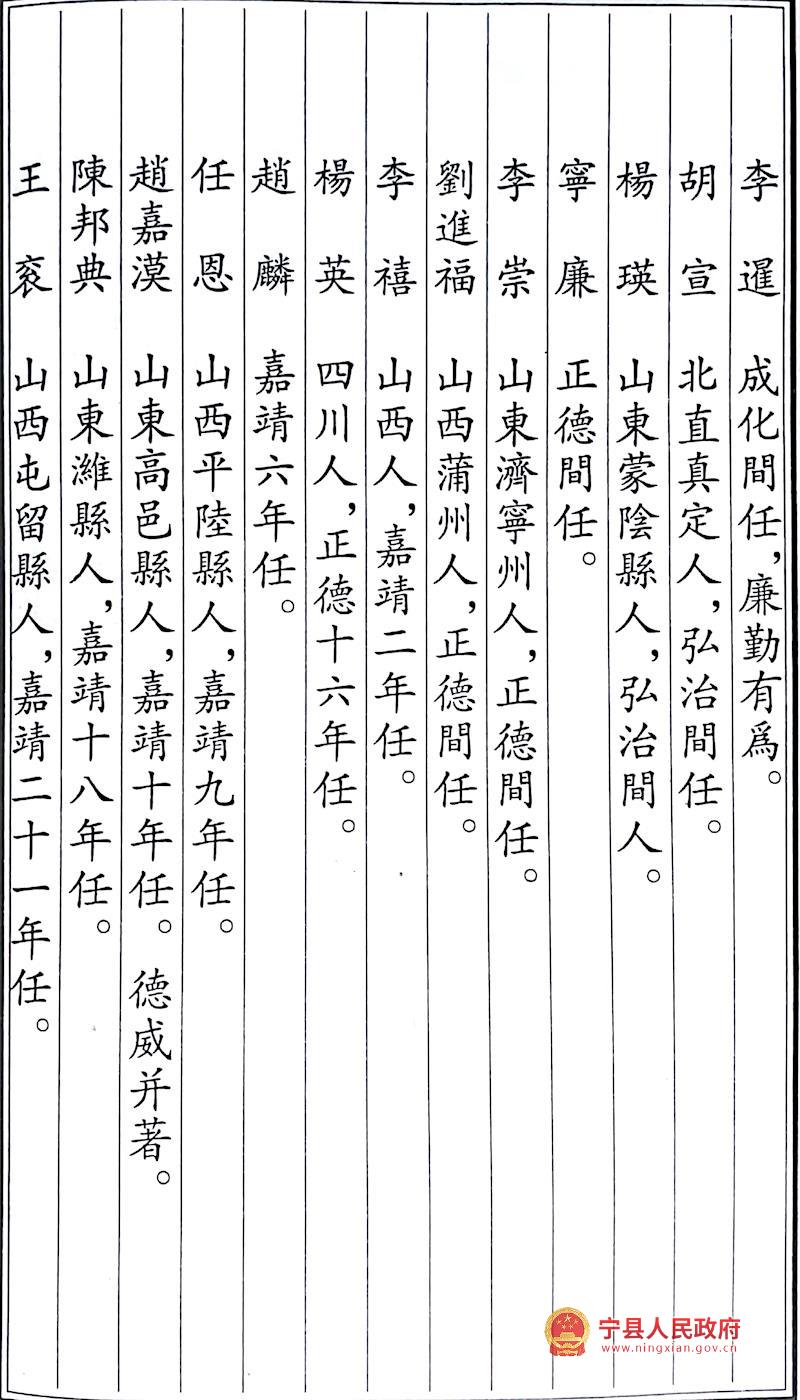 李暹 成化間任，廉勤有爲。
胡宣 北直真定人，弘治間任。
楊瑛 山東蒙陰縣人，弘治間人。
寧廉 正德間任。
李崇 山東濟寧州人，正德間任。
劉進福 山西蒲州人，正德間任。
李禧 山西人，嘉靖二年任。
楊英 四川人，正德十六年任。
趙麟 嘉靖六年任。
任恩 山西平陸縣人，嘉靖九年任。
趙嘉漠 山東高邑縣人，嘉靖十年任。德威并著。
陳邦典 山東濰縣人，嘉靖十八年任。
王衮 山西屯留縣人，嘉靖二十一年任。
宁县人民政府
www.ningxian.gov.cn